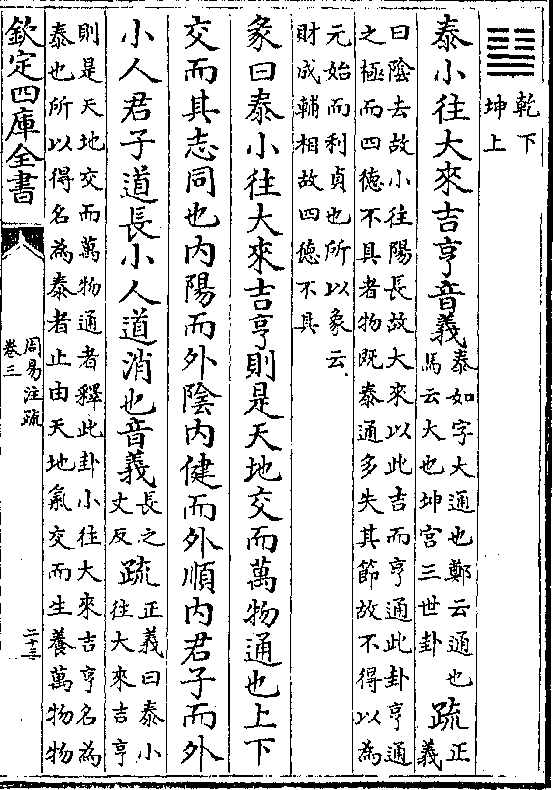 乾下
坤上
泰小往大來吉亨音義泰如字大通也鄭云通也
馬云大也坤宮三世卦疏正
義
曰陰去故小往陽長故大來以此吉而亨通此卦亨通
之極而四德不具者物既泰通多失其節故不得以為
元始而利貞也所以象云
財成輔相故四德不具
彖曰泰小往大來吉亨則是天地交而萬物通也上下
交而其志同也內陽而外陰內健而外順內君子而外
小人君子道長小人道消也音義長之
丈反疏正義曰泰小
往大來吉亨
則是天地交而萬物通者釋此卦小往大來吉亨名為
泰也所以得名為泰者止由天地氣交而生養萬物物
欽定四庫全書
周易注疏
卷三
二十三